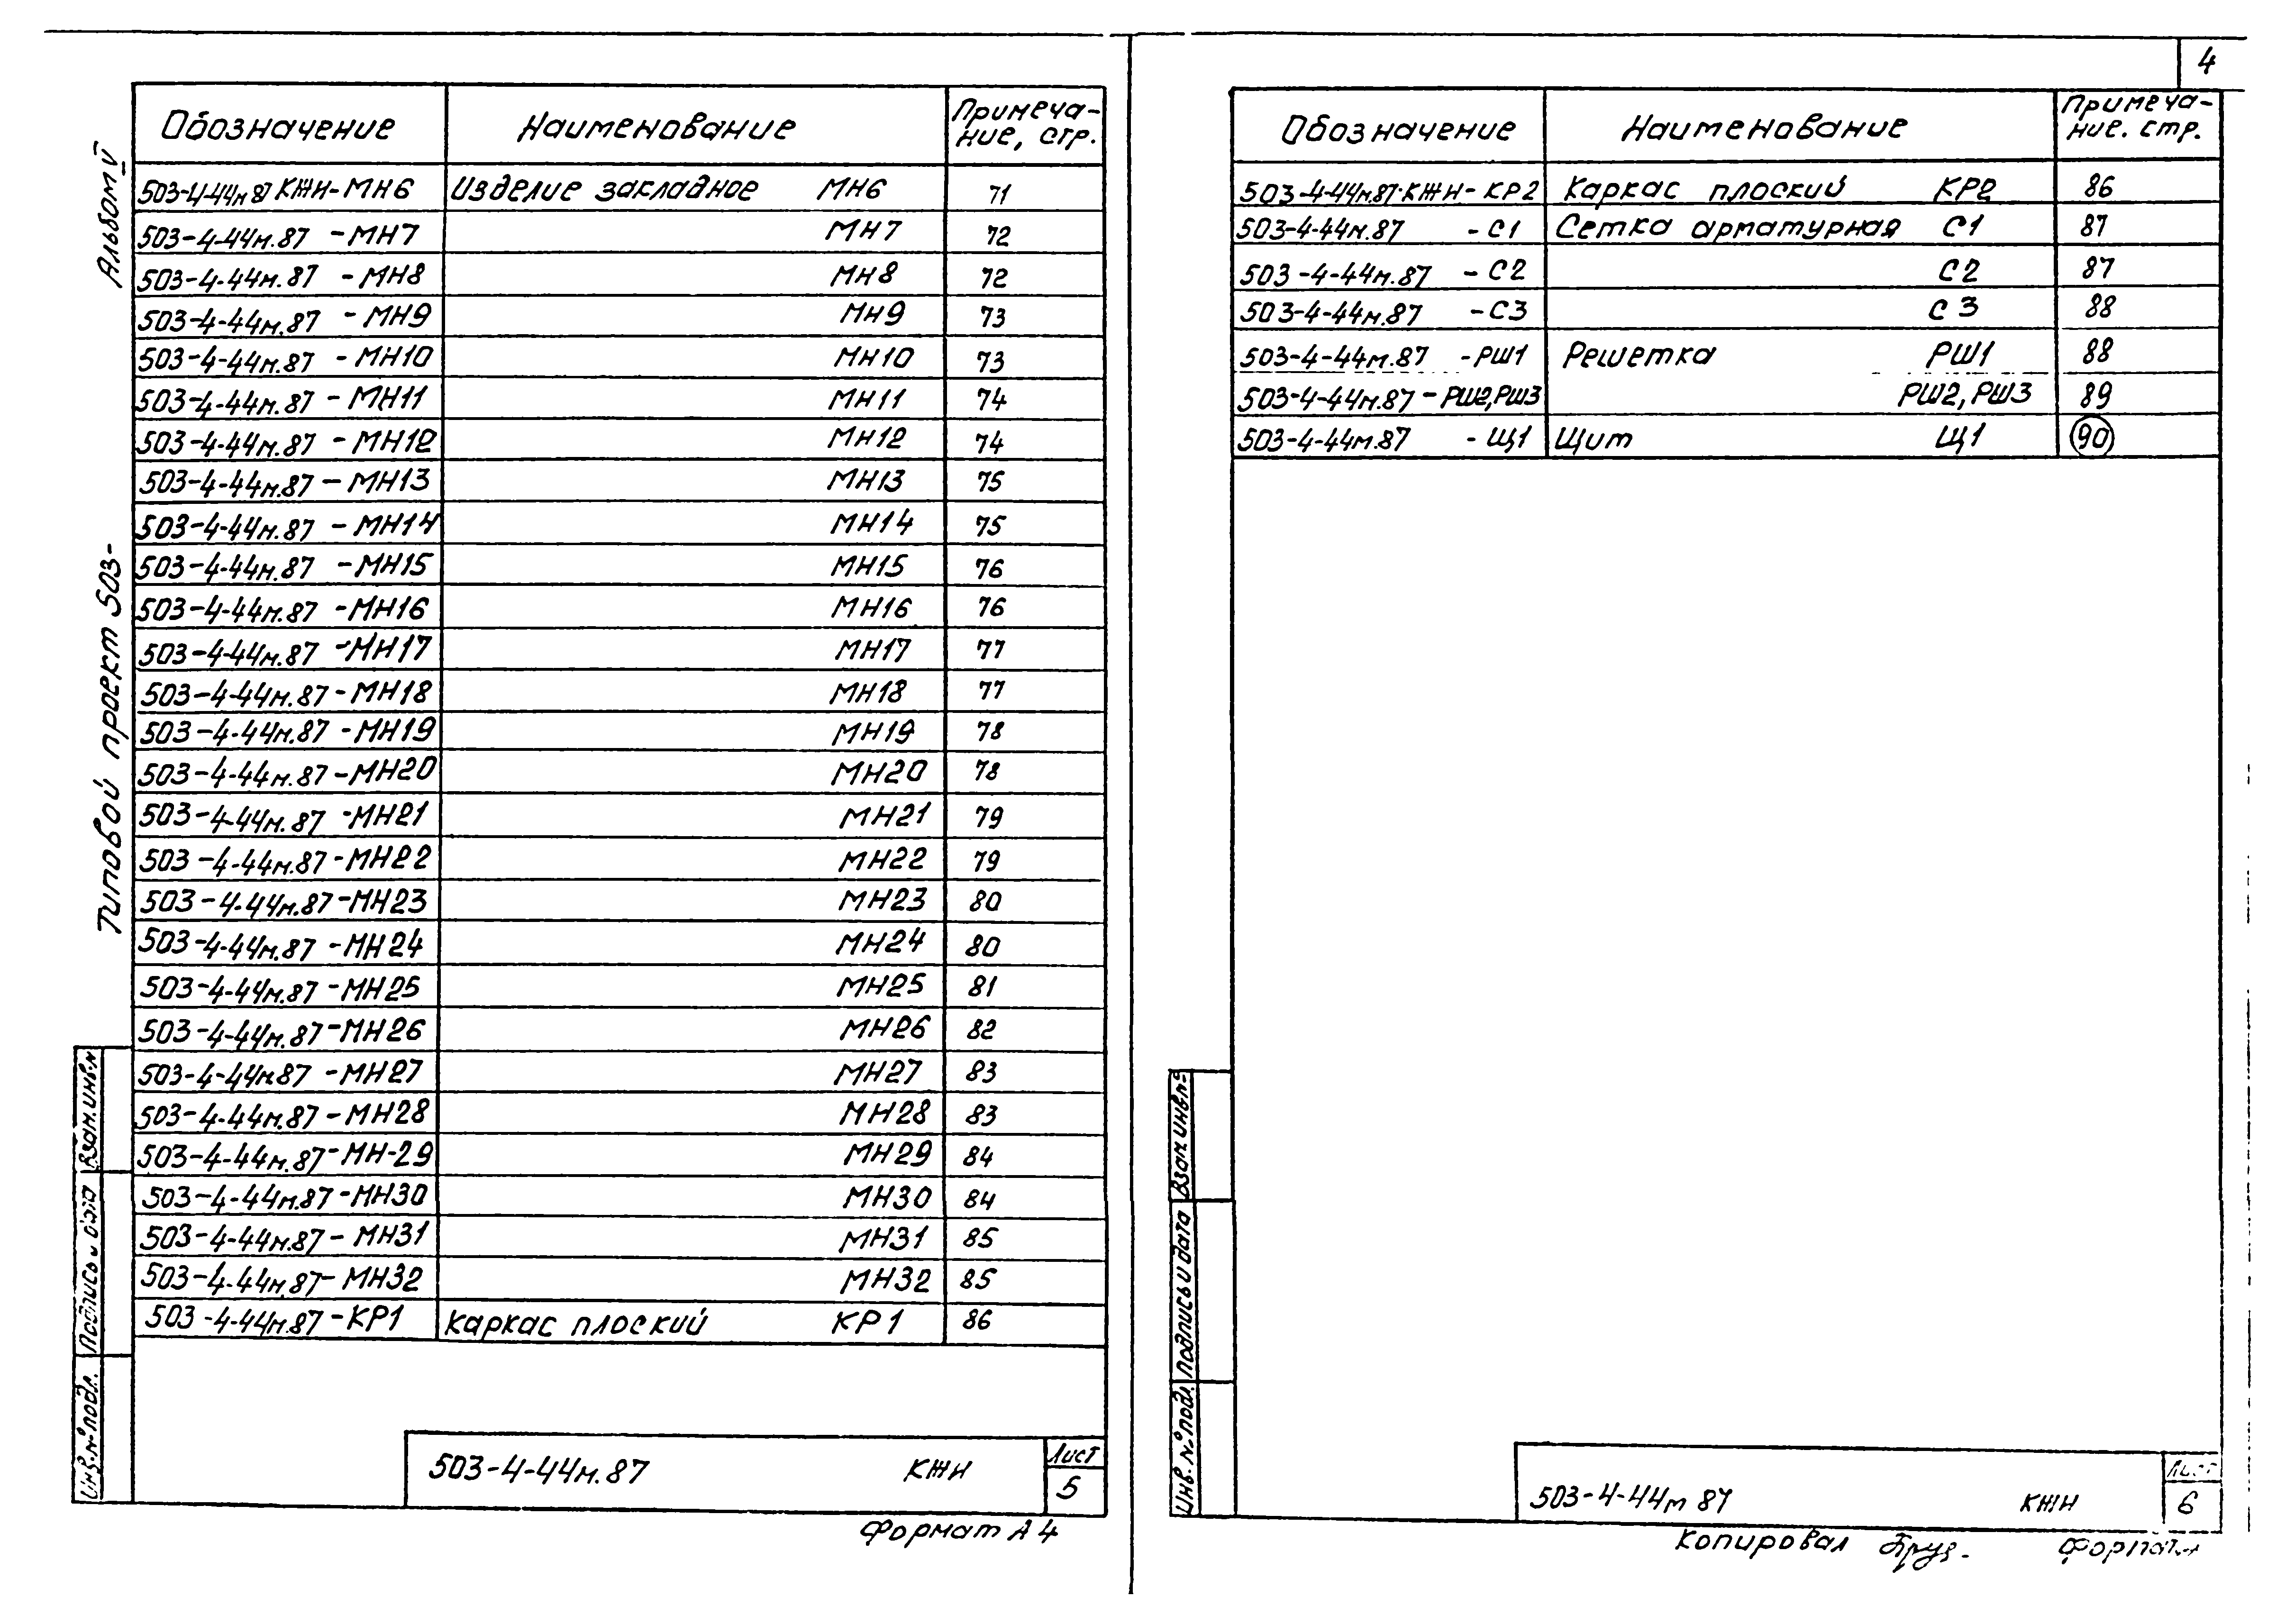 4
Альбом V
Типовой проект 503-
Обозначение Наименование Примеча-
ние, стр.
503-4-44м87 КЖИ-МН6 Изделие закладное МН6 71
503-4-44м.87 -МН7 МН7 72
503-4-44м.87 -МН8 МН8 72
503-4-44м.87 -МН9 МН9 73
503-4-44м.87 -МН10 МН10 73
503-4-44м.87 -МН11 МН11 74
503-4-44м.87 -МН12 МН12 74
503-4-44м.87-МН13 МН13 75
503-4-44м.87 -МН14 МН14 75
503-4-44м.87 -МН15 МН15 76
503-4-44м.87 -МН16 МН16 76
503-4-44м.87 -МН17 МН17 77
503-4-44м.87-МН18 МН18 77
503-4-44м.87 -МН19 МН19 78
503-4-44м.87-МН20 МН20 78
503-4-44м.87 -МН21 МН21 79
503-4-44м.87-МН22 МН22 79
503-4-44м.87-МН23 МН23 80
503-4-44м.87 -МН24 МН24 80
503-4-44м.87 -МН25 МН25 81
503-4-44м.87-МН26 МН26 82
503-4-44м87 -МН27 МН27 83
503-4-44м.87-МН28 МН28 83
503-4-44м.87-МН-29 МН29 84
503-4-44м.87-МН30 МН30 84
503-4-44м.87- МН31 МН31 85
503-4-44м.87- МН32 МН32 85
503-4-44м.87-КР1 Каркас плоский КР1 86
Взам.инв.N
Подпись и дата
Инв.№подл.
503-4-44м.87 КЖИ Лист
5
Формат А4
Обозначение Наименование Примеча-
ние. стр.
503-4-44м.87-КЖИ-КР2 Каркас плоский КР2 86
503-4-44м.87 -С1 Сетка арматурная С1 87
503-4-44м.87 -С2 С2 87
503-4-44м.87 -С3 С3 88
503-4-44м.87 -РШ1 Решетка РШ1 88
503-4-44м.87-РШ2,РШ3 РШ2,РШ3 89
503-4-44м.87 -Щ1 Щит Щ1 90
Взам.инв.№
Подпись и дата
Инв.№подл.
503-4-44м 87 КЖИ Лист
6
Копировал Формат